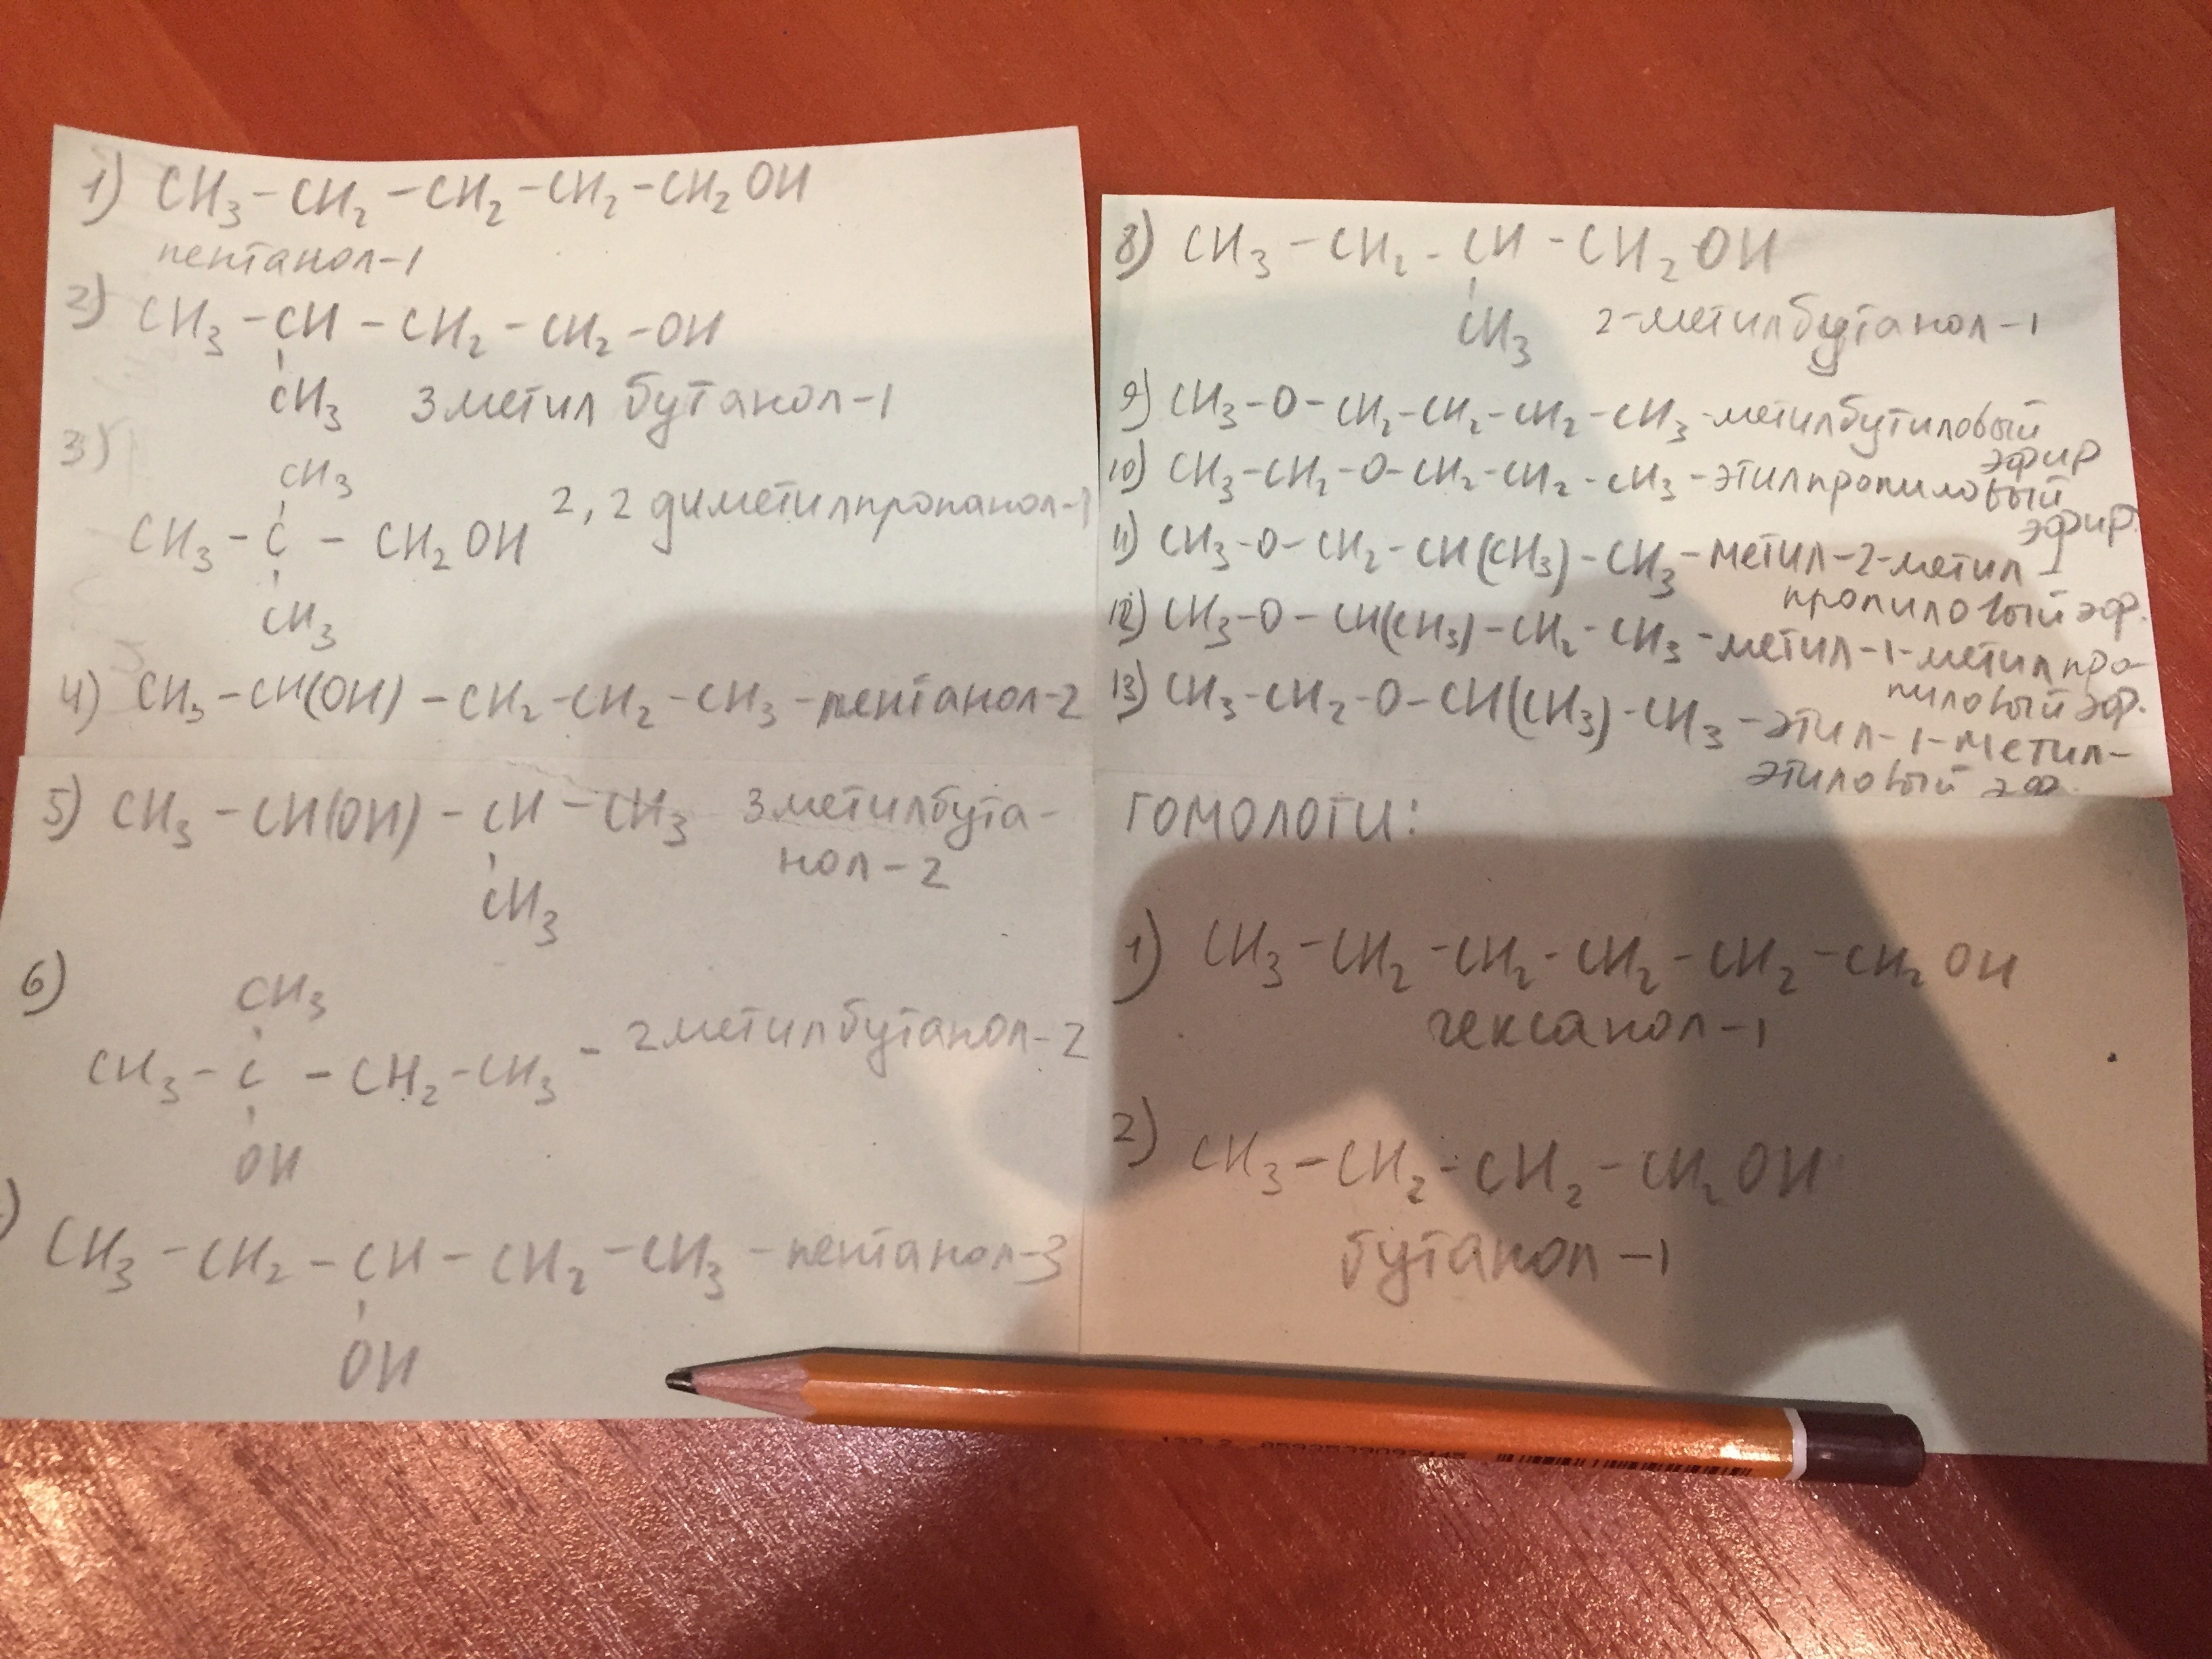 1) CH₃-CH₂-CH₂-CH₂-CH₂OH
пентанол-1
2) CH₃-CH-CH₂-CH₂-OH
CH₃ 3метил бутанол-1
3) CH₃
CH₃-C-CH₂OH 2,2 диметилпропанол-1
CH₃
4) CH₃-CH(OH)-CH₂-CH₂-CH₃-пентанол-2
5) CH₃-CH(OH)-CH-CH₃ 3метилбута-
нол-2
CH₃
6) CH₃
CH₃-C-CH₂-CH₃-2метилбутанол-2
OH
) CH₃-CH₂-CH-CH₂-CH₃-пентанол-3
OH
8) CH₃-CH₂-CH-CH₂OH
CH₃ 2-метилбутанол-1
9) CH₃-O-CH₂-CH₂-CH₂-CH₃-метилбутиловый
эфир
10) CH₃-CH₂-O-CH₂-CH₂-CH₃-этилпропиловый
эфир.
11) CH₃-O-CH₂-CH(CH₃)-CH₃-метил-2-метил-
пропиловый эф.
12) CH₃-O-CH(CH₃)-CH₂-CH₃-метил-1-метилпро-
пиловый эф.
13) CH₃-CH₂-O-CH(CH₃)-CH₃-этил-1-метил-
этиловый эф.
ГОМОЛОГИ:
1) CH₃-CH₂-CH₂-CH₂-CH₂-CH₂OH
гексанол-1
2) CH₃-CH₂-CH₂-CH₂OH
бутанол-1